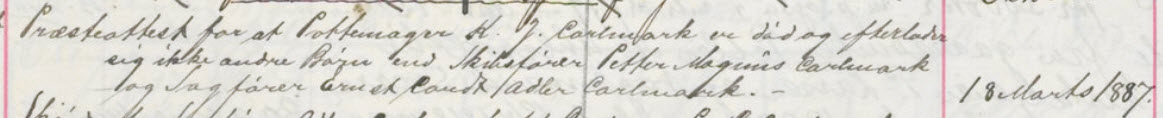 Præsteattest for at Pottemager K. J. Carlmark er død og efterlader
sig ikke andre Børn end Skibsfører Petter Magnus Carlmark
og Sagfører Ernst Adler Carlmark. – 18 Marts 1887.